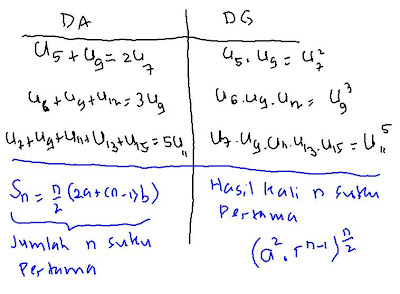 DA
DG
U5 + U9 = 2U7
U5 . U9 = U7²
U6 + U9 + U12 = 3U9
U6 . U9 . U12 = U9³
U7 + U9 + U11 + U13 + U15 = 5U11
U7 . U9 . U11 . U13 . U15 = U11⁵
Sn = n/2 (2a + (n-1)b)
Jumlah n suku
Pertama
Hasil kali n suku
Pertama
(a² . r^(n-1))^(n/2)